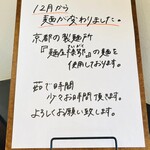 12月から
麺が変わりました。
京都の製麺所
『麺屋棣鄂』の麺を
使用しております。
茹で時間
少々お時間頂きます。
よろしくお願い致します。